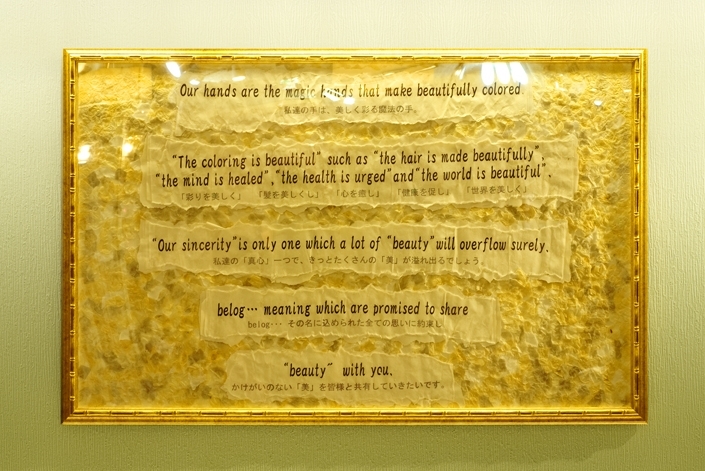 Our hands are the magic hands that make beautifully colored
私達の手は、美しく彩る魔法の手。
"The coloring is beautiful" such as "the hair is made beautifully",
"the mind is healed","the health is urged"and"the world is beautiful".
「彩りを美しく」 「髪を美しくし」 「心を癒し」 「健康を促し」 「世界を美しく」
"Our sincerity"is only one which a lot of "beauty"will overflow surely.
私達の「真心」一つで、きっとたくさんの「美」が溢れ出るでしょう。
belog… meaning which are promised to share
belog… その名に込められた全ての思いに約束し
"beauty" with you.
かけがいのない「美」を皆様と共有していきたいです。